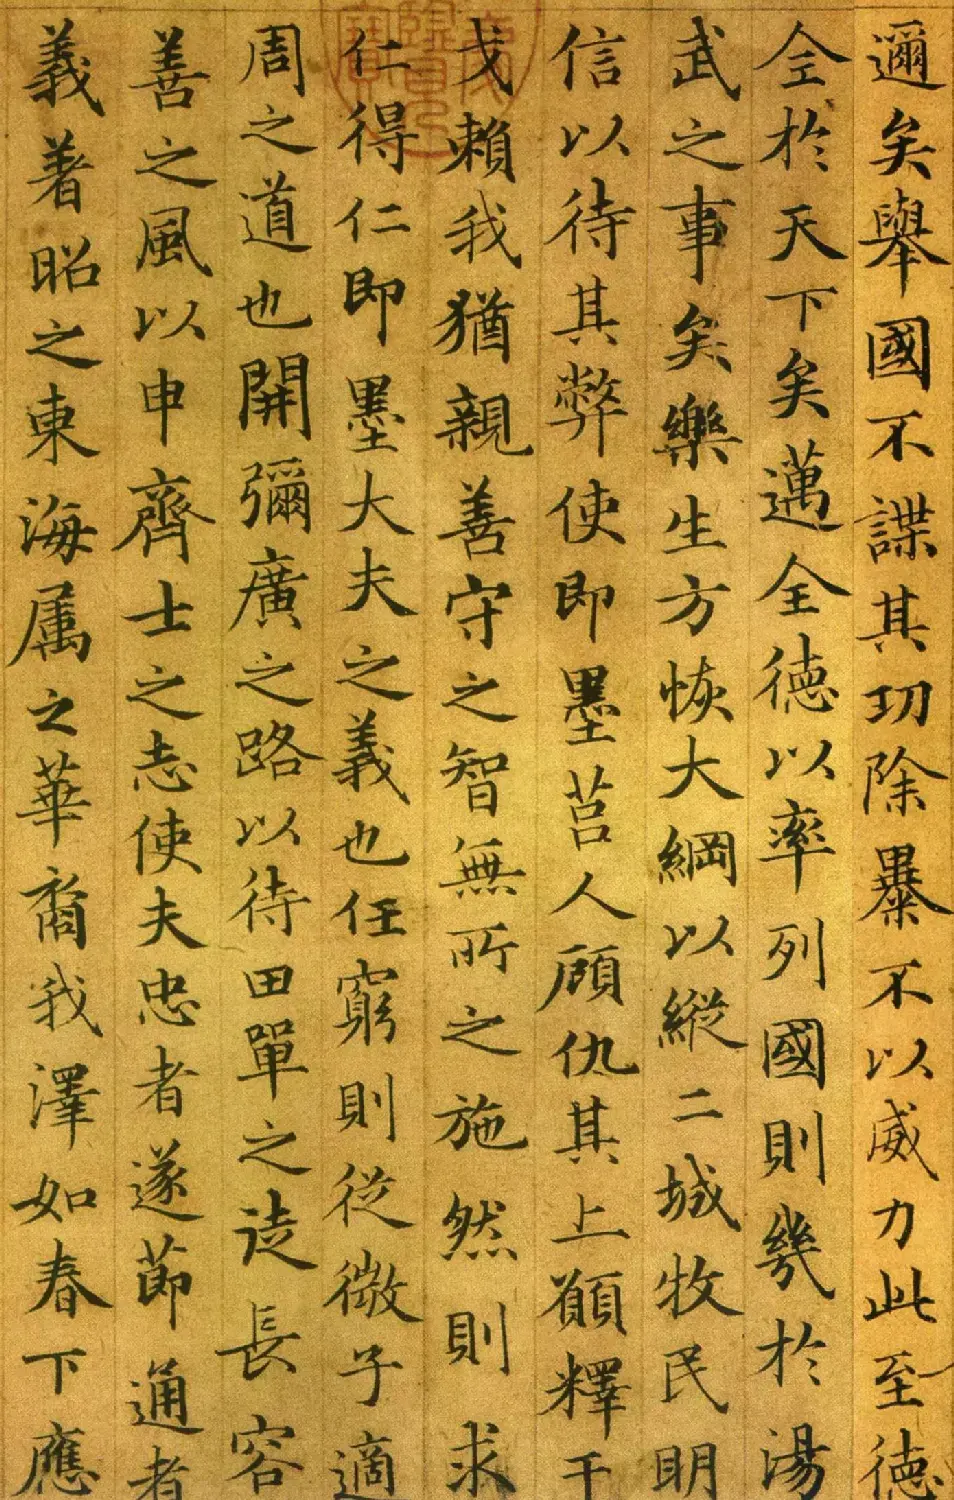 邇矣舉國不謀其功除暴不以威力此至德
全於天下矣邁全德以率列國則幾於湯
武之事矣樂生方恢大綱以縱二城牧民明
信以待其弊使即墨莒人顧仇其上願釋干
戈賴我猶親善守之智無所之施然則求
仁得仁即墨大夫之義也任窮則從微子適
周之道也開彌廣之路以待田單之徒長容
善之風以申齊士之志使夫忠者遂節通者
義著昭之東海属之華裔我澤如春下應